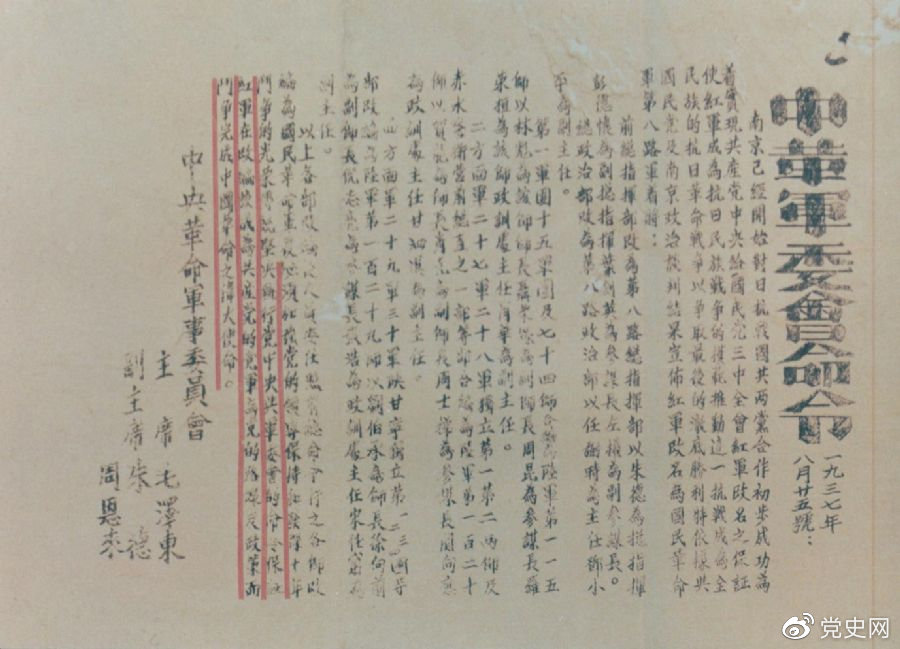 中革軍委會命令
一九三七年
八月廿五號：
南京已經開始對日抗戰國共兩黨合作初步成功為
着實現共產党中央給國民党三中全會紅軍改名之保証
使紅軍成為抗日民族戰争的模範推動這一抗戰成為全
民族的抗日革命戰争以争取最後的澈底勝利特依據共
國民党及南京政治談判結果宣佈紅軍改名為國民革命
軍第八路軍着將：
前總指揮部改為第八路總指揮部以朱德為總指揮
彭德懷為副總指揮葉劍英為參謀長左權為副參謀長。
總政治部改為第八路政治部以任弼時為主任鄧小
平為副主任。
第一軍團十五軍團及七十四師合編為陸軍第一一五
師以林彪為該師師長聶榮臻為副師長周昆為參謀長羅
榮桓為該師政訓處主任肖華為副主任。
二方面軍二十七軍二十八軍獨立第一第二兩師及
赤水警衛營前總直之一部等部合編為陸軍第一百二十
師以賀龍為師長肖克為副師長周士第為參謀長關向應
為政訓處主任甘泗淇為副主任。
四方面軍二十九軍三十軍陝甘寧獨立第一二三四等
部改編為陸軍第一百二十九師以劉伯承為師長徐向前
為副師長倪志亮為參謀長張浩為政訓處主任宋任窮為
副主任。
以上各部改編後人員委任照前總命令行之各師改
編為國民革命軍後必須加强党的領導保持和發揮十年
鬥争的光榮傳統堅決執行党中央與軍委會的命令保証
紅軍在改編後成為共產党的党軍為党的路綫及政策而
鬥争完成中國革命之偉大使命。
中央革命軍事委員會
主席毛澤東
副主席朱德
周恩来
党史网